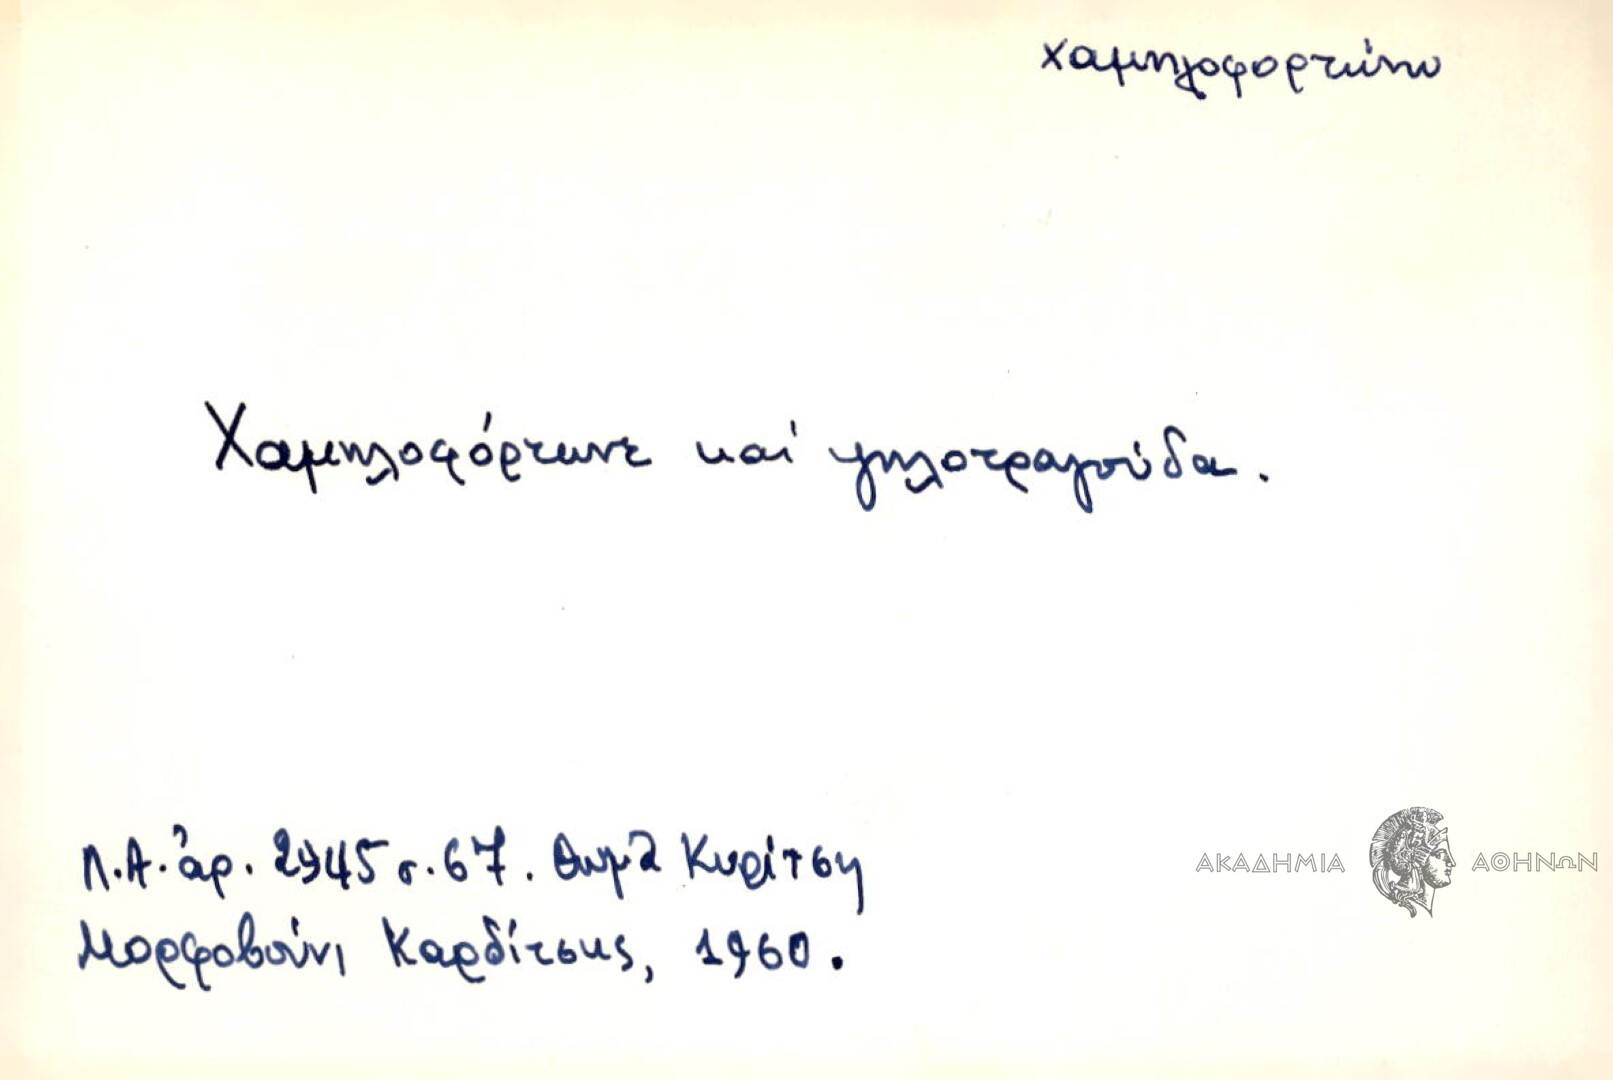 χαμηλοφορτώνω
Χαμηλοφόρτωνε καί ψηλοτραγούδα.
Λ.Α. ἀρ. 2945 σ. 67. Θωμᾶ Κυρίτση
Μορφοβούνι Καρδίτσης, 1960.
ΑΚΑΔΗΜΙΑ ΑΘΗΝΩΝ